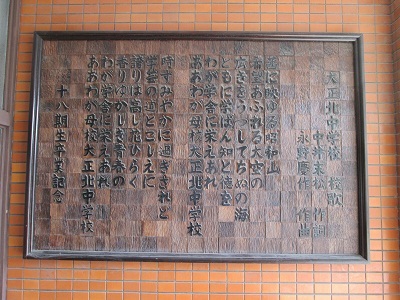 大正北中学校 校歌
中津末松 作詞
永野慶作 作曲
空に映ゆる昭和山
希望あふれる大空の
広きをうつしてちぬの海
ともに学ばん知と徳を
わが学舎に栄えあれ
ああわが母校大正北中学校
時すみやかに過ぎされど
学芸の道とこしえに
誇りは高し花ひらく
香りゆかしき青春の
わが学舎に栄えあれ
ああわが母校大正北中学校
十八期生卒業記念